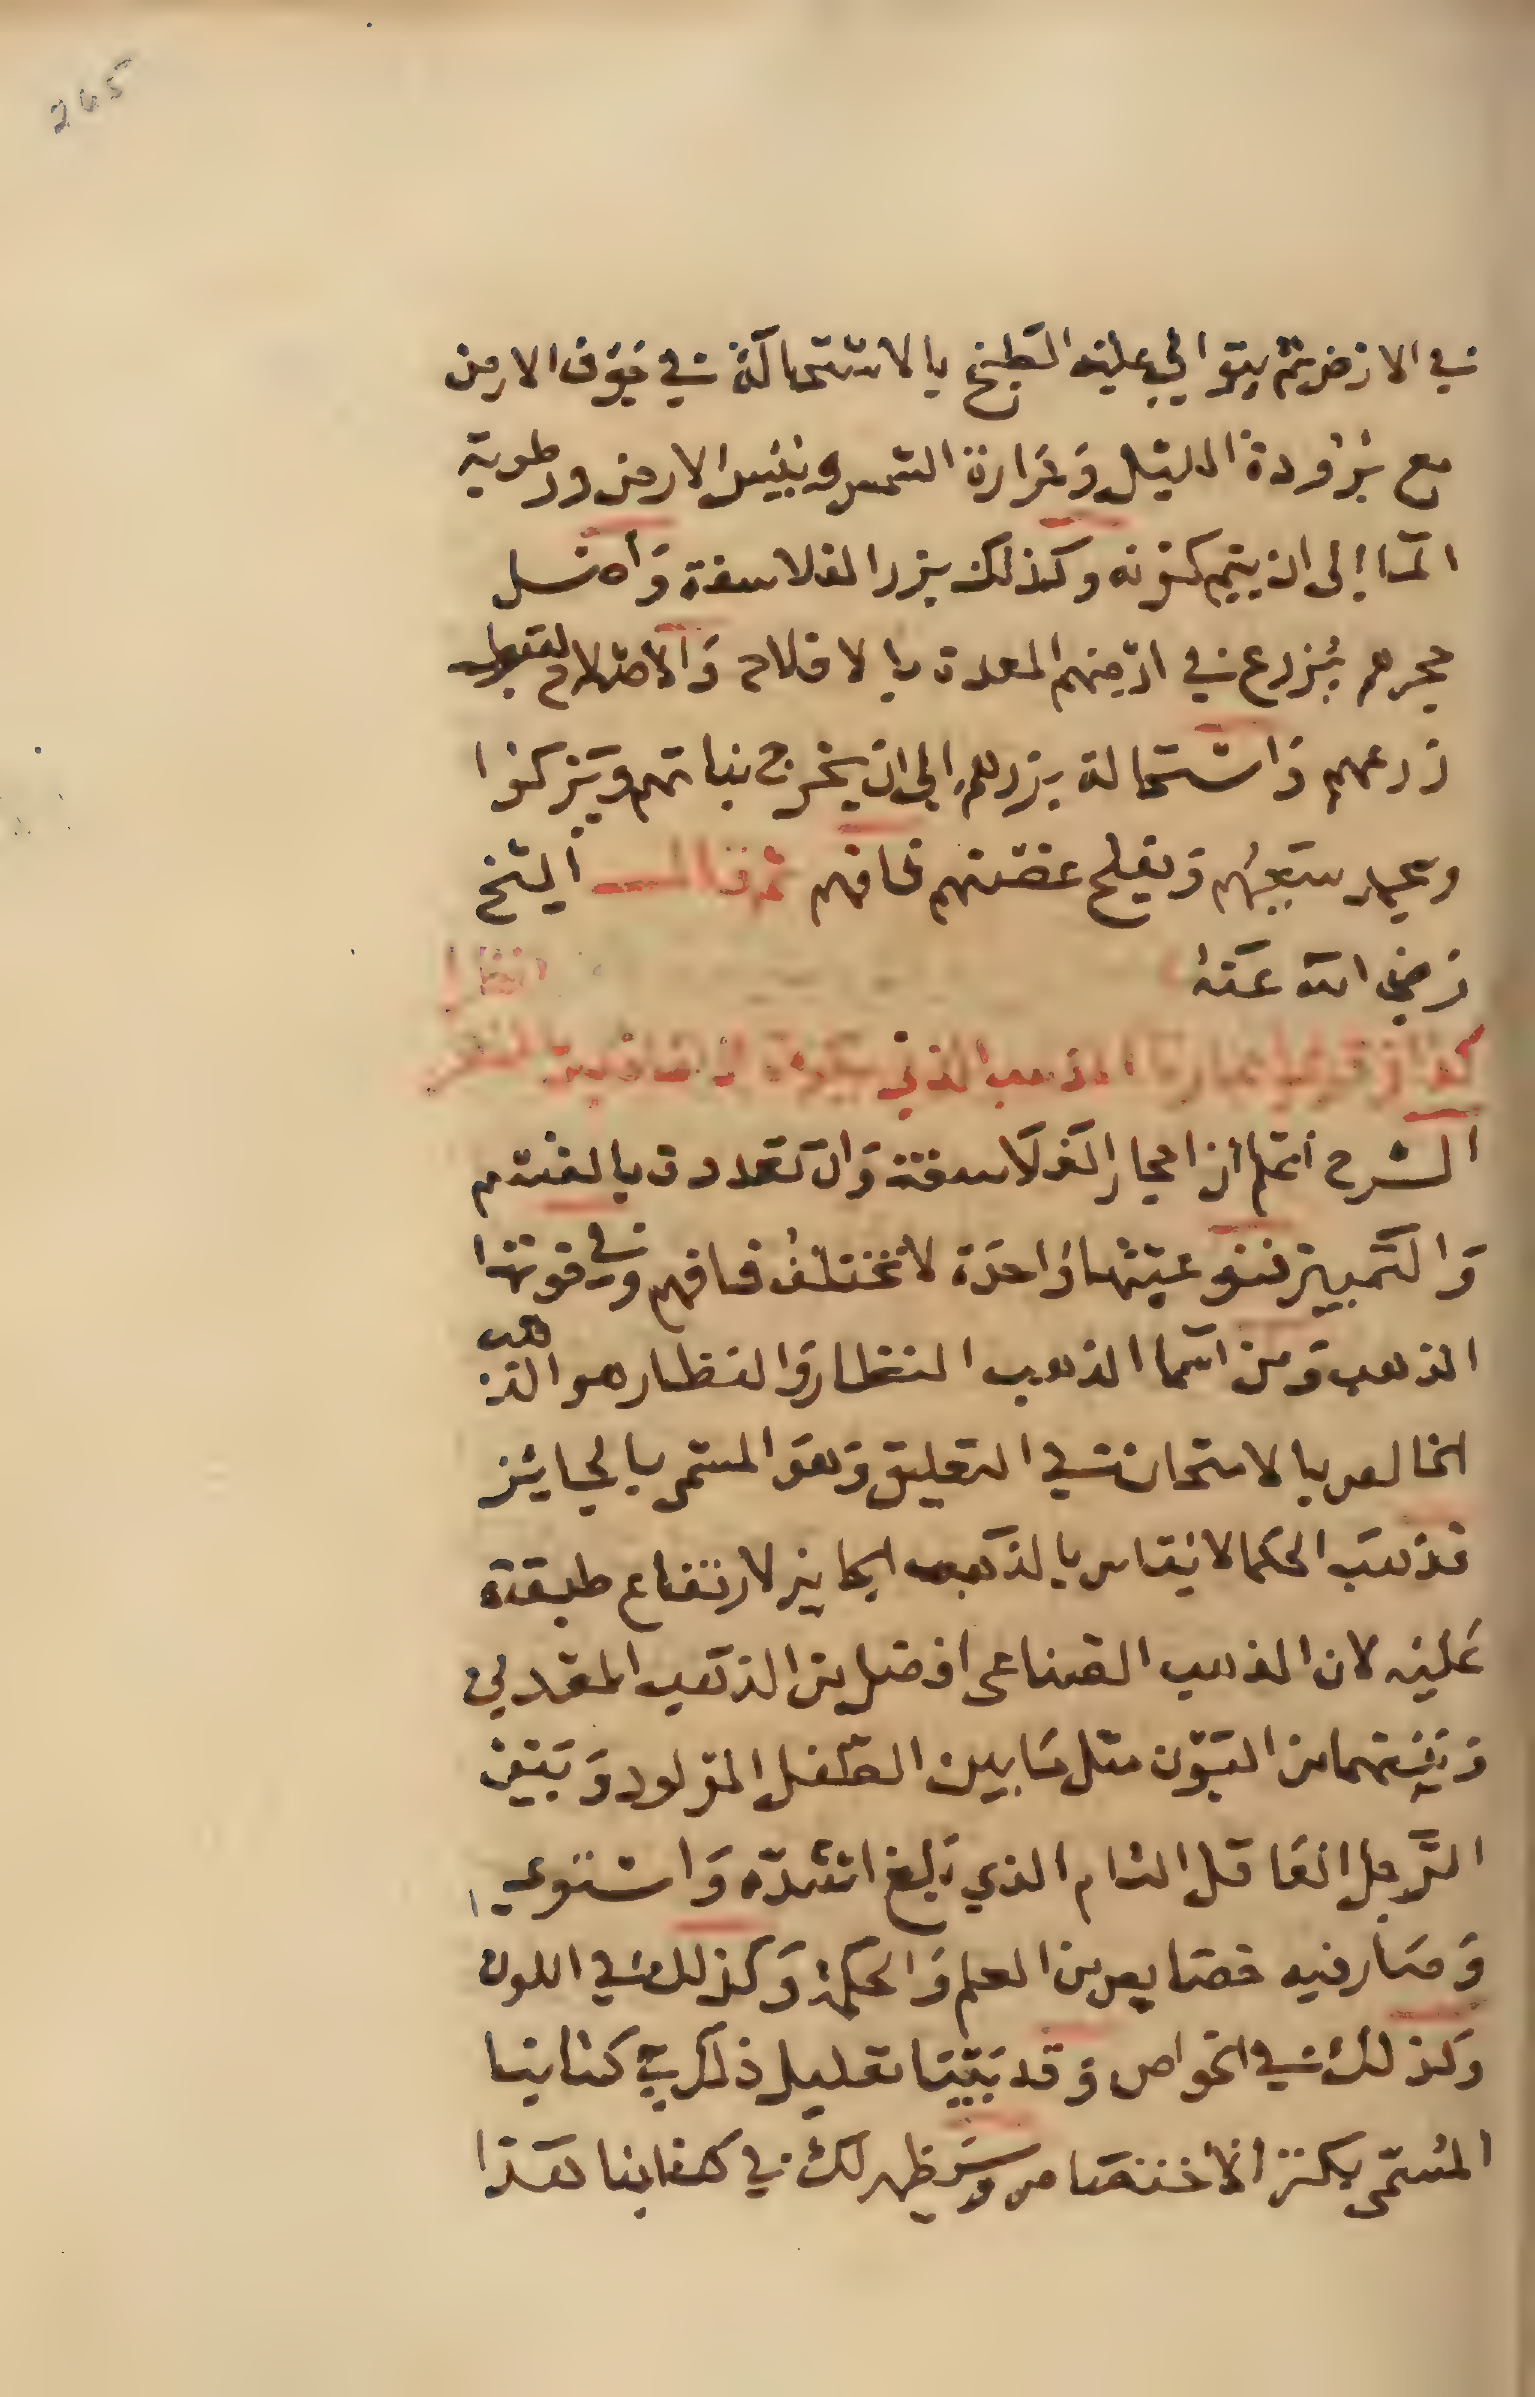 265
في الارض ثم يتوالي عليه الطبخ بالاستحالة في جوف الارض
مع برودة الليل وحرارة الشمس ويبس الارض ورطوبة
المآ إلى ان يتم كونه وكذلك بزر الفلاسفة واصل
حجرهم يزرع في ارضهم المعدة بالافلاح والاصلاح لقبول
زرعهم واستحالة بزرهم إلى ان يخرج نباتهم ويزكوا
سعيهم ويفلح فافهم ثم قال الشيخ
رضي الله عنه
الذهب الذي
الشرح اعلم ان احجار الفلاسفة وان تعددت بالقسم
والتمييز فنوعيتها واحدة لا تختلف فافهم وفي قوتها
الذهب ومن اسما الذهب النظار والنظار هو الذهب
الخالص بالامتحان في التعليق وهو المسمى بالجايز
فذهب الحكما لا يقاس بالذهب الجايز لارتفاع طبقته
عليه لان الذهب الصناعى افضل من الذهب المعدني
وبينهما من البون مثل ما بين الطفل المولود وبين
الرجل العاقل التام الذي بلغ اشده واستوي
وصار فيه خصايص من العلم والحكمة وكذلك في اللون
وكذلك في الخواص وقد بيّنا تعليل ذلك في كتابنا
المسمى بكنز الاختصاص وسيظهر لك في كتابنا هذا